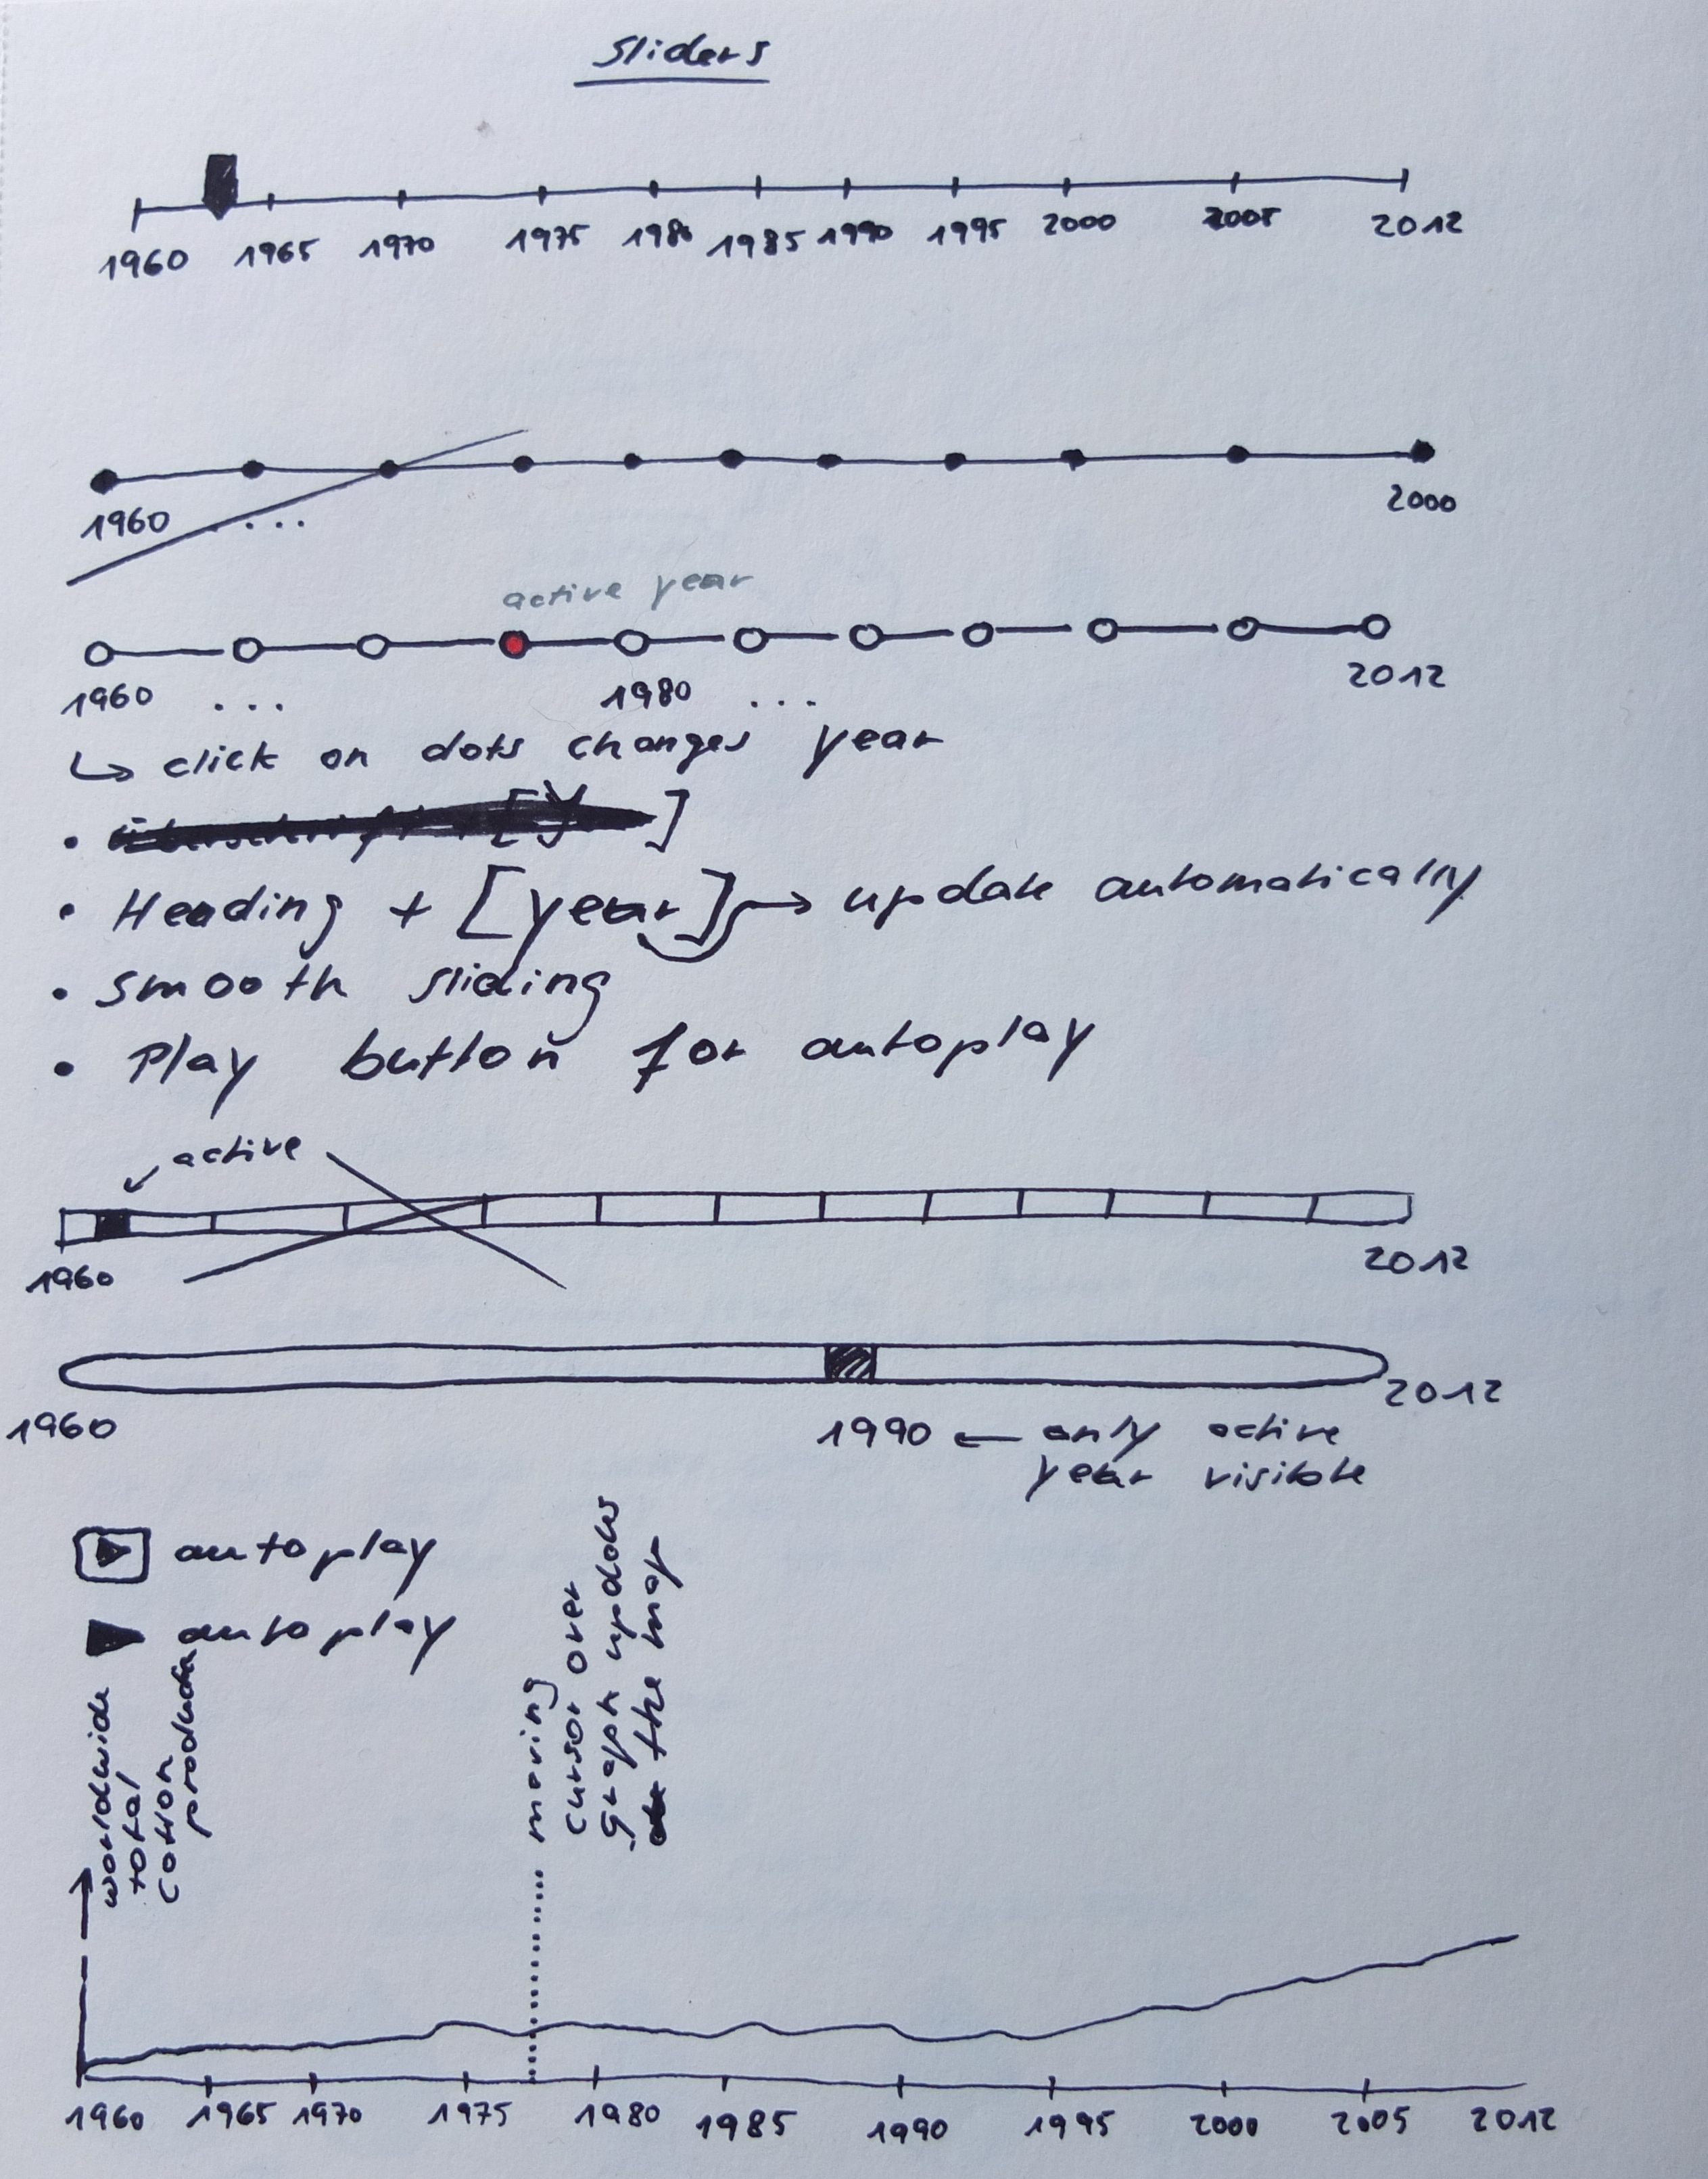 Sliders
1960 1965 1970 1975 1980 1985 1990 1995 2000 2005 2012
1960 .... 2000
active year
1960 ... 1980 ... 2012
↳ click on dots changes year
• ]
• Heading + [year] → update automatically
• smooth sliding
• Play button for autoplay
active
1960 2012
1960 2012
1990 ← only active
year visible
autoplay
autoplay
worldwide
total
cotton
production
moving
cursor over
graph updates
the map
1960 1965 1970 1975 1980 1985 1990 1995 2000 2005 2012